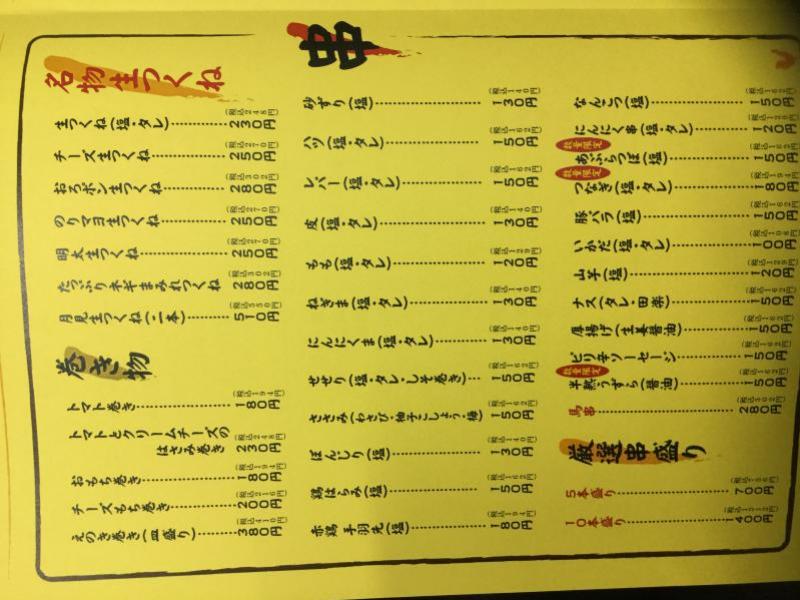 串
名物生つくね
生つくね(塩・タレ) 230円 (税込248円)
チーズ生つくね 250円 (税込270円)
おろポン生つくね 280円 (税込302円)
のりマヨ生つくね 250円 (税込270円)
明太生つくね 250円 (税込270円)
たっぷりネギまみれつくね 280円 (税込302円)
月見生つくね(一本) 510円 (税込550円)
巻き物
トマト巻き 180円 (税込194円)
トマトとクリームチーズの
はさみ巻き 230円 (税込248円)
おもち巻き 180円 (税込194円)
チーズもち巻き 200円 (税込216円)
えのき巻き(皿盛り) 380円 (税込410円)
砂ずり(塩) 130円 (税込140円)
ハツ(塩・タレ) 150円 (税込162円)
レバー(塩・タレ) 150円 (税込162円)
皮(塩・タレ) 130円 (税込140円)
もも(塩・タレ) 120円 (税込129円)
ねぎま(塩・タレ) 130円 (税込140円)
にんにくま(塩・タレ) 130円 (税込140円)
せせり(塩・タレ・しそ巻き) 150円 (税込162円)
ささみ(わさび・柚子こしょう・梅) 150円 (税込162円)
ぼんしり(塩) 130円 (税込140円)
鶏はらみ(塩) 150円 (税込162円)
赤鶏 手羽先(塩) 180円 (税込194円)
なんこつ(塩) 150円 (税込162円)
にんにく串(塩・タレ) 120円 (税込129円)
数量限定
あぶらつぼ(塩) 150円 (税込162円)
数量限定
つなぎ(塩・タレ) 180円 (税込194円)
豚バラ(塩) 150円 (税込162円)
いかだ(塩・タレ) 100円 (税込108円)
山芋(塩) 120円 (税込129円)
ナス(タレ・田楽) 150円 (税込162円)
厚揚げ(生姜醤油) 150円 (税込162円)
ピリ辛ソーセージ 150円 (税込162円)
数量限定
半熟うずら(醤油) 150円 (税込162円)
馬串 280円 (税込302円)
厳選串盛り
5本盛り 700円 (税込756円)
10本盛り 1400円 (税込1512円)